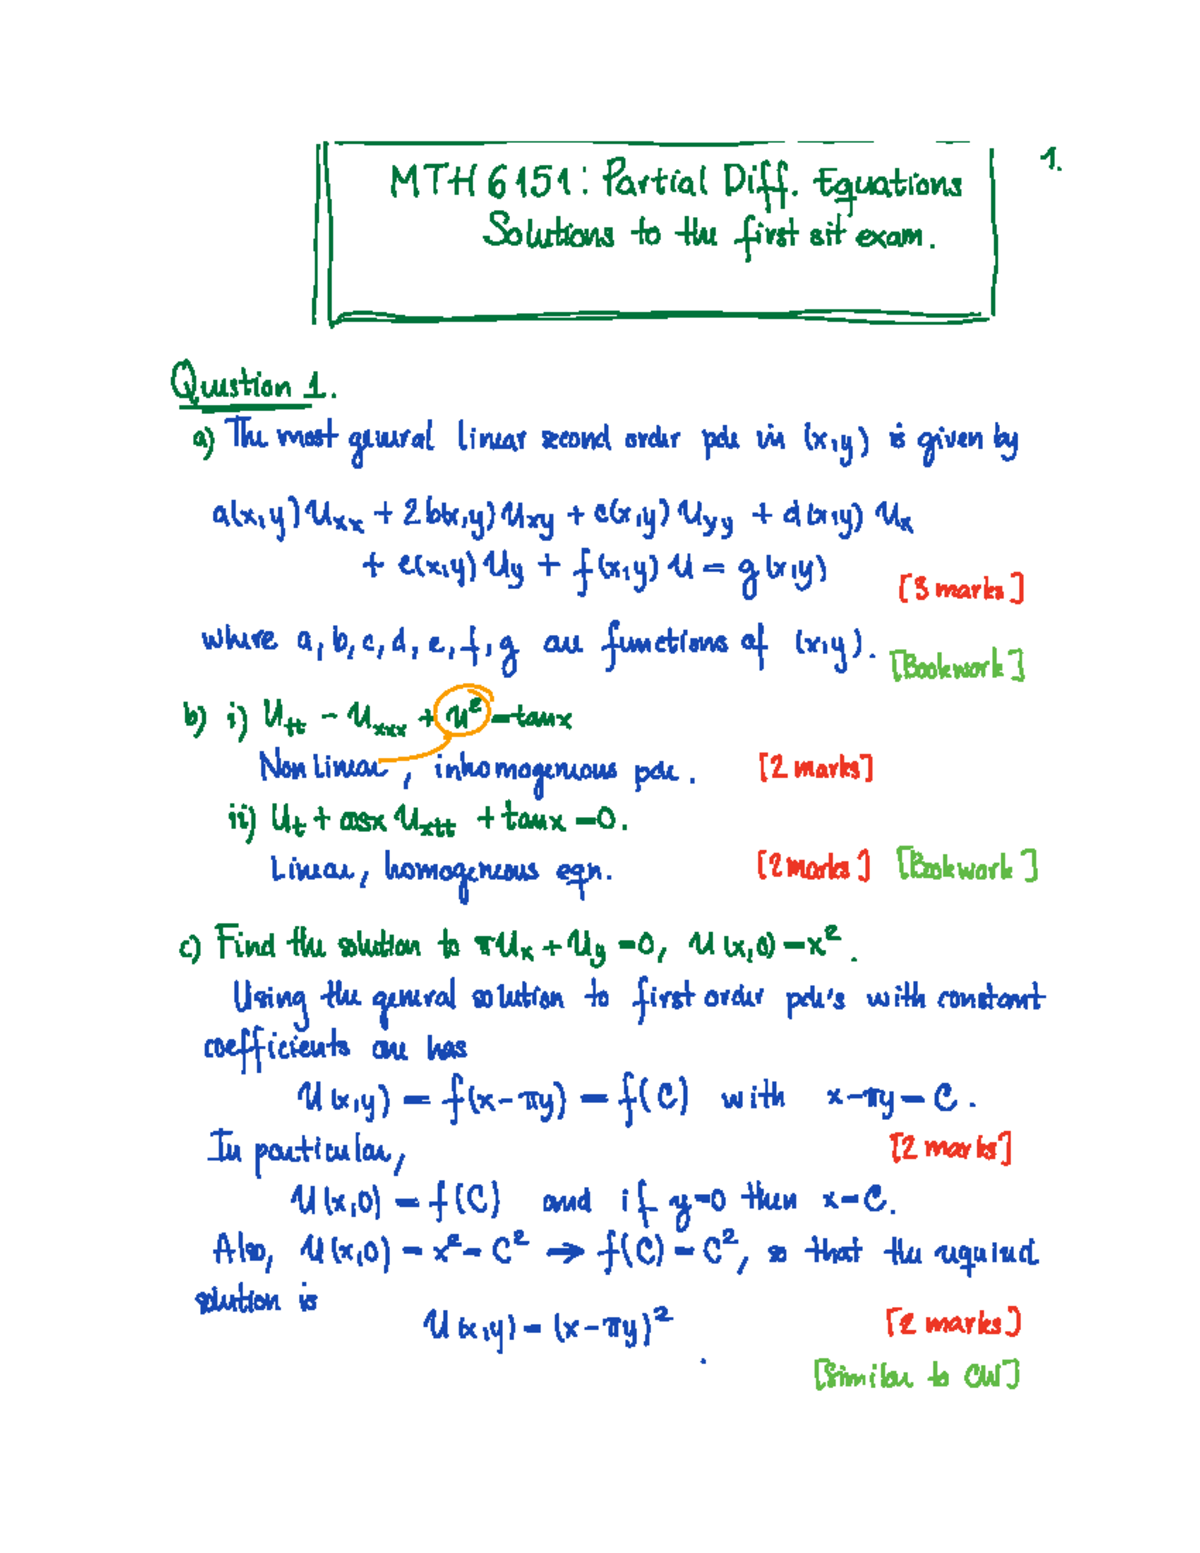 1.
MTH 6151: Partial Diff. Equations
Solutions to the first sit exam.
Question 1.
a) The most general linear second order pde in (x,y) is given by
a(x,y) Uxx + 2b(x,y) Uxy + c(x,y) Uyy + d(x,y) Ux
+ e(x,y) Uy + f(x,y) U = g(x,y)
[3 marks]
where a, b, c, d, e, f, g are functions of (x,y).
[Bookwork]
b) i) Utt - Uxxx + U² = tanx
Non Linear, inhomogeneous pde. [2 marks]
ii) Ut + cosx Uxtt + tanx = 0.
Linear, homogeneous eqn. [2 marks] [Bookwork]
c) Find the solution to πUx + Uy = 0, U(x,0) = x².
Using the general solution to first order pde's with constant
coefficients one has
U(x,y) = f(x-πy) = f(C) with x-πy = C.
In particular, [2 marks]
U(x,0) = f(C) and if y=0 then x=C.
Also, U(x,0) = x² = C² → f(C) = C², so that the required
solution is
U(x,y) = (x-πy)² [2 marks]
[Similar to CW]